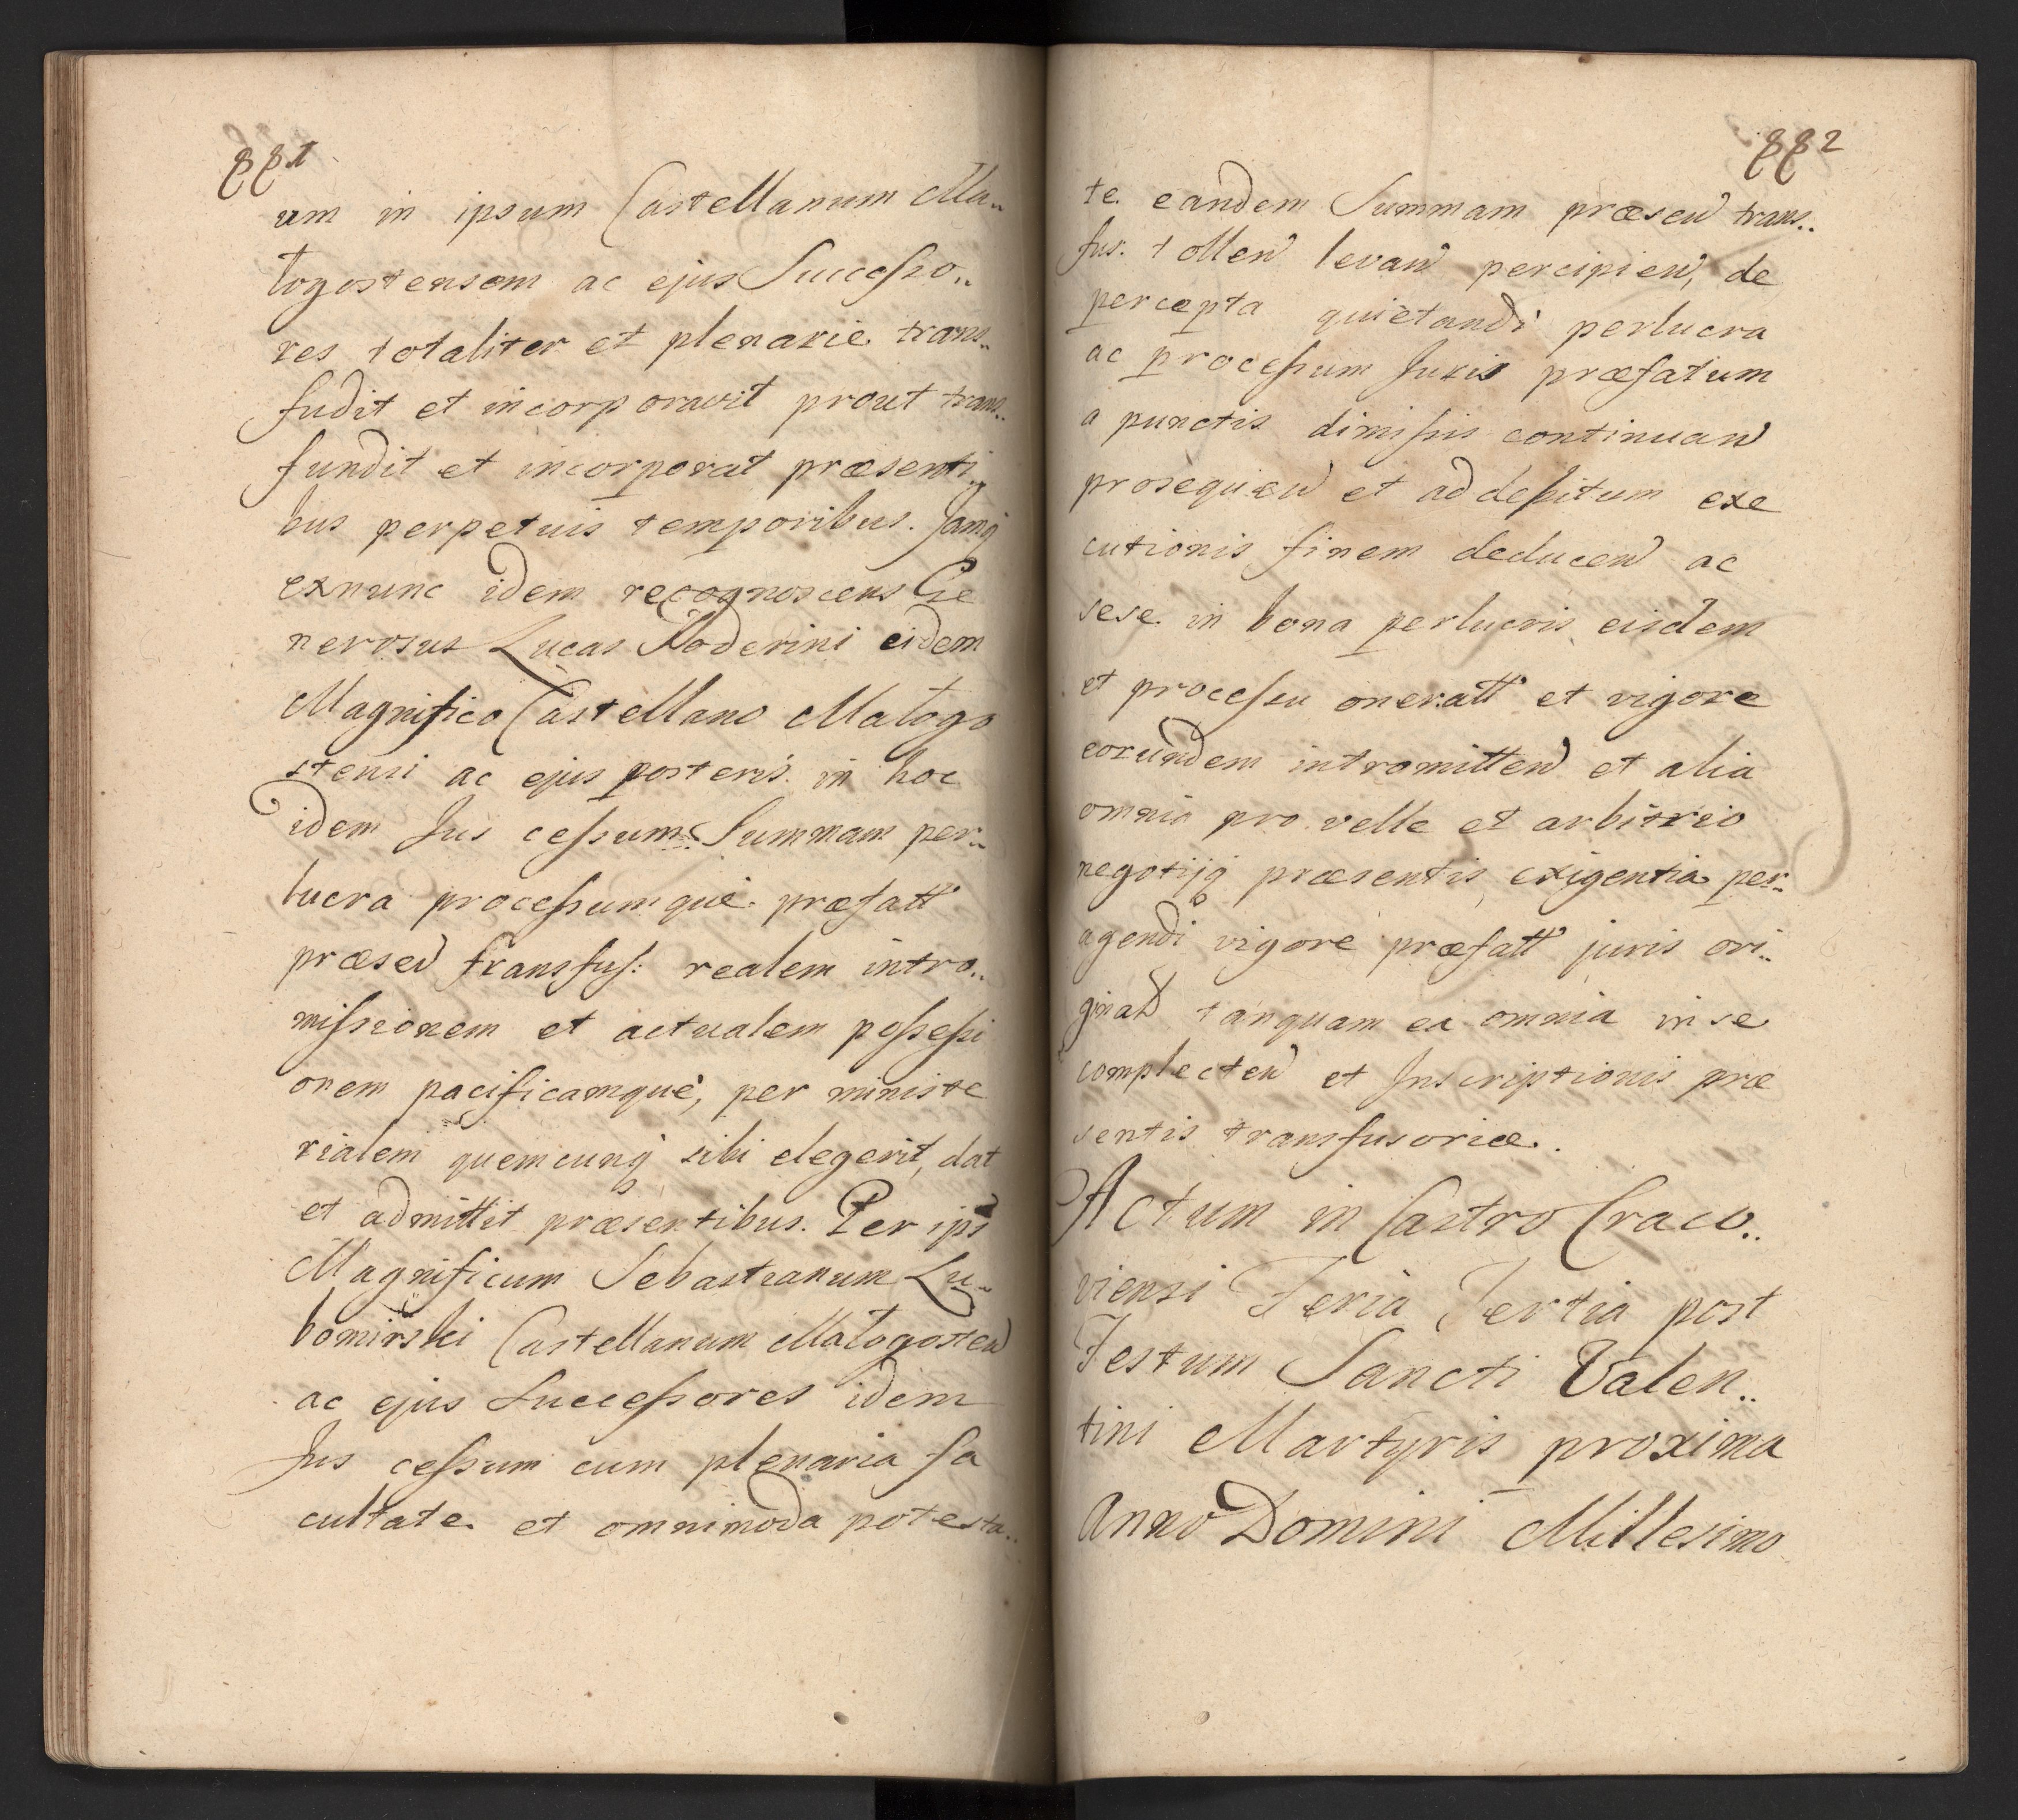 881
um in ipsum Castellanum Ma„
łogostensem ac ejus Successo„
res totaliter et plenarie trans„
fudit et incorporavit prout trans„
fundit et incorporat præsenti„
bus perpetuis temporibus. Jamq́
exnunc idem recognoscens Ge
nerosus Lucas Roderini eidem
Magnifico Castellano Małogo
stensi ac ejus posteris in hoc
idem Jus cessum Summam per„
lucra processumque præfatt
præsen transfus: realem intro„
missionem et actualem possessi
onem pacificamque, per ministe
rialem quemcunq́ sibi elegerit, dat
et admittit præsentibus. Per ips
Magnificum Sebastianum Lu„
bomirski Castellanum Małogosten
ac ejus Successores idem
Jus cessum cum plenaria fa
cultate et omnimoda potesta„
882
te eandem Summam præsen trans„
fus. tollen levan percipien, de
percepta quietandi perlucra
ac processum Juris præfatum
a punctis dimissis continuan
prosequien et ad debitum exe
cutionis finem deducen ac
sese in bona perlucris eisdem
et processu oneratt et vigore
eorundem intromitten et alia
omnia pro velle et arbitrio
negotijq́ præsentis exigentia per„
agendi vigore præfatt juris ori„
ginal tanquam ea omnia in se
complecten et Inscriptionis præ
sentis transfusoriæ.
Actum in Castro Craco„
viensi Feria Tertia post
Festum Sancti Valen„
tini Martyris proxima
Anno Domini Millesimo